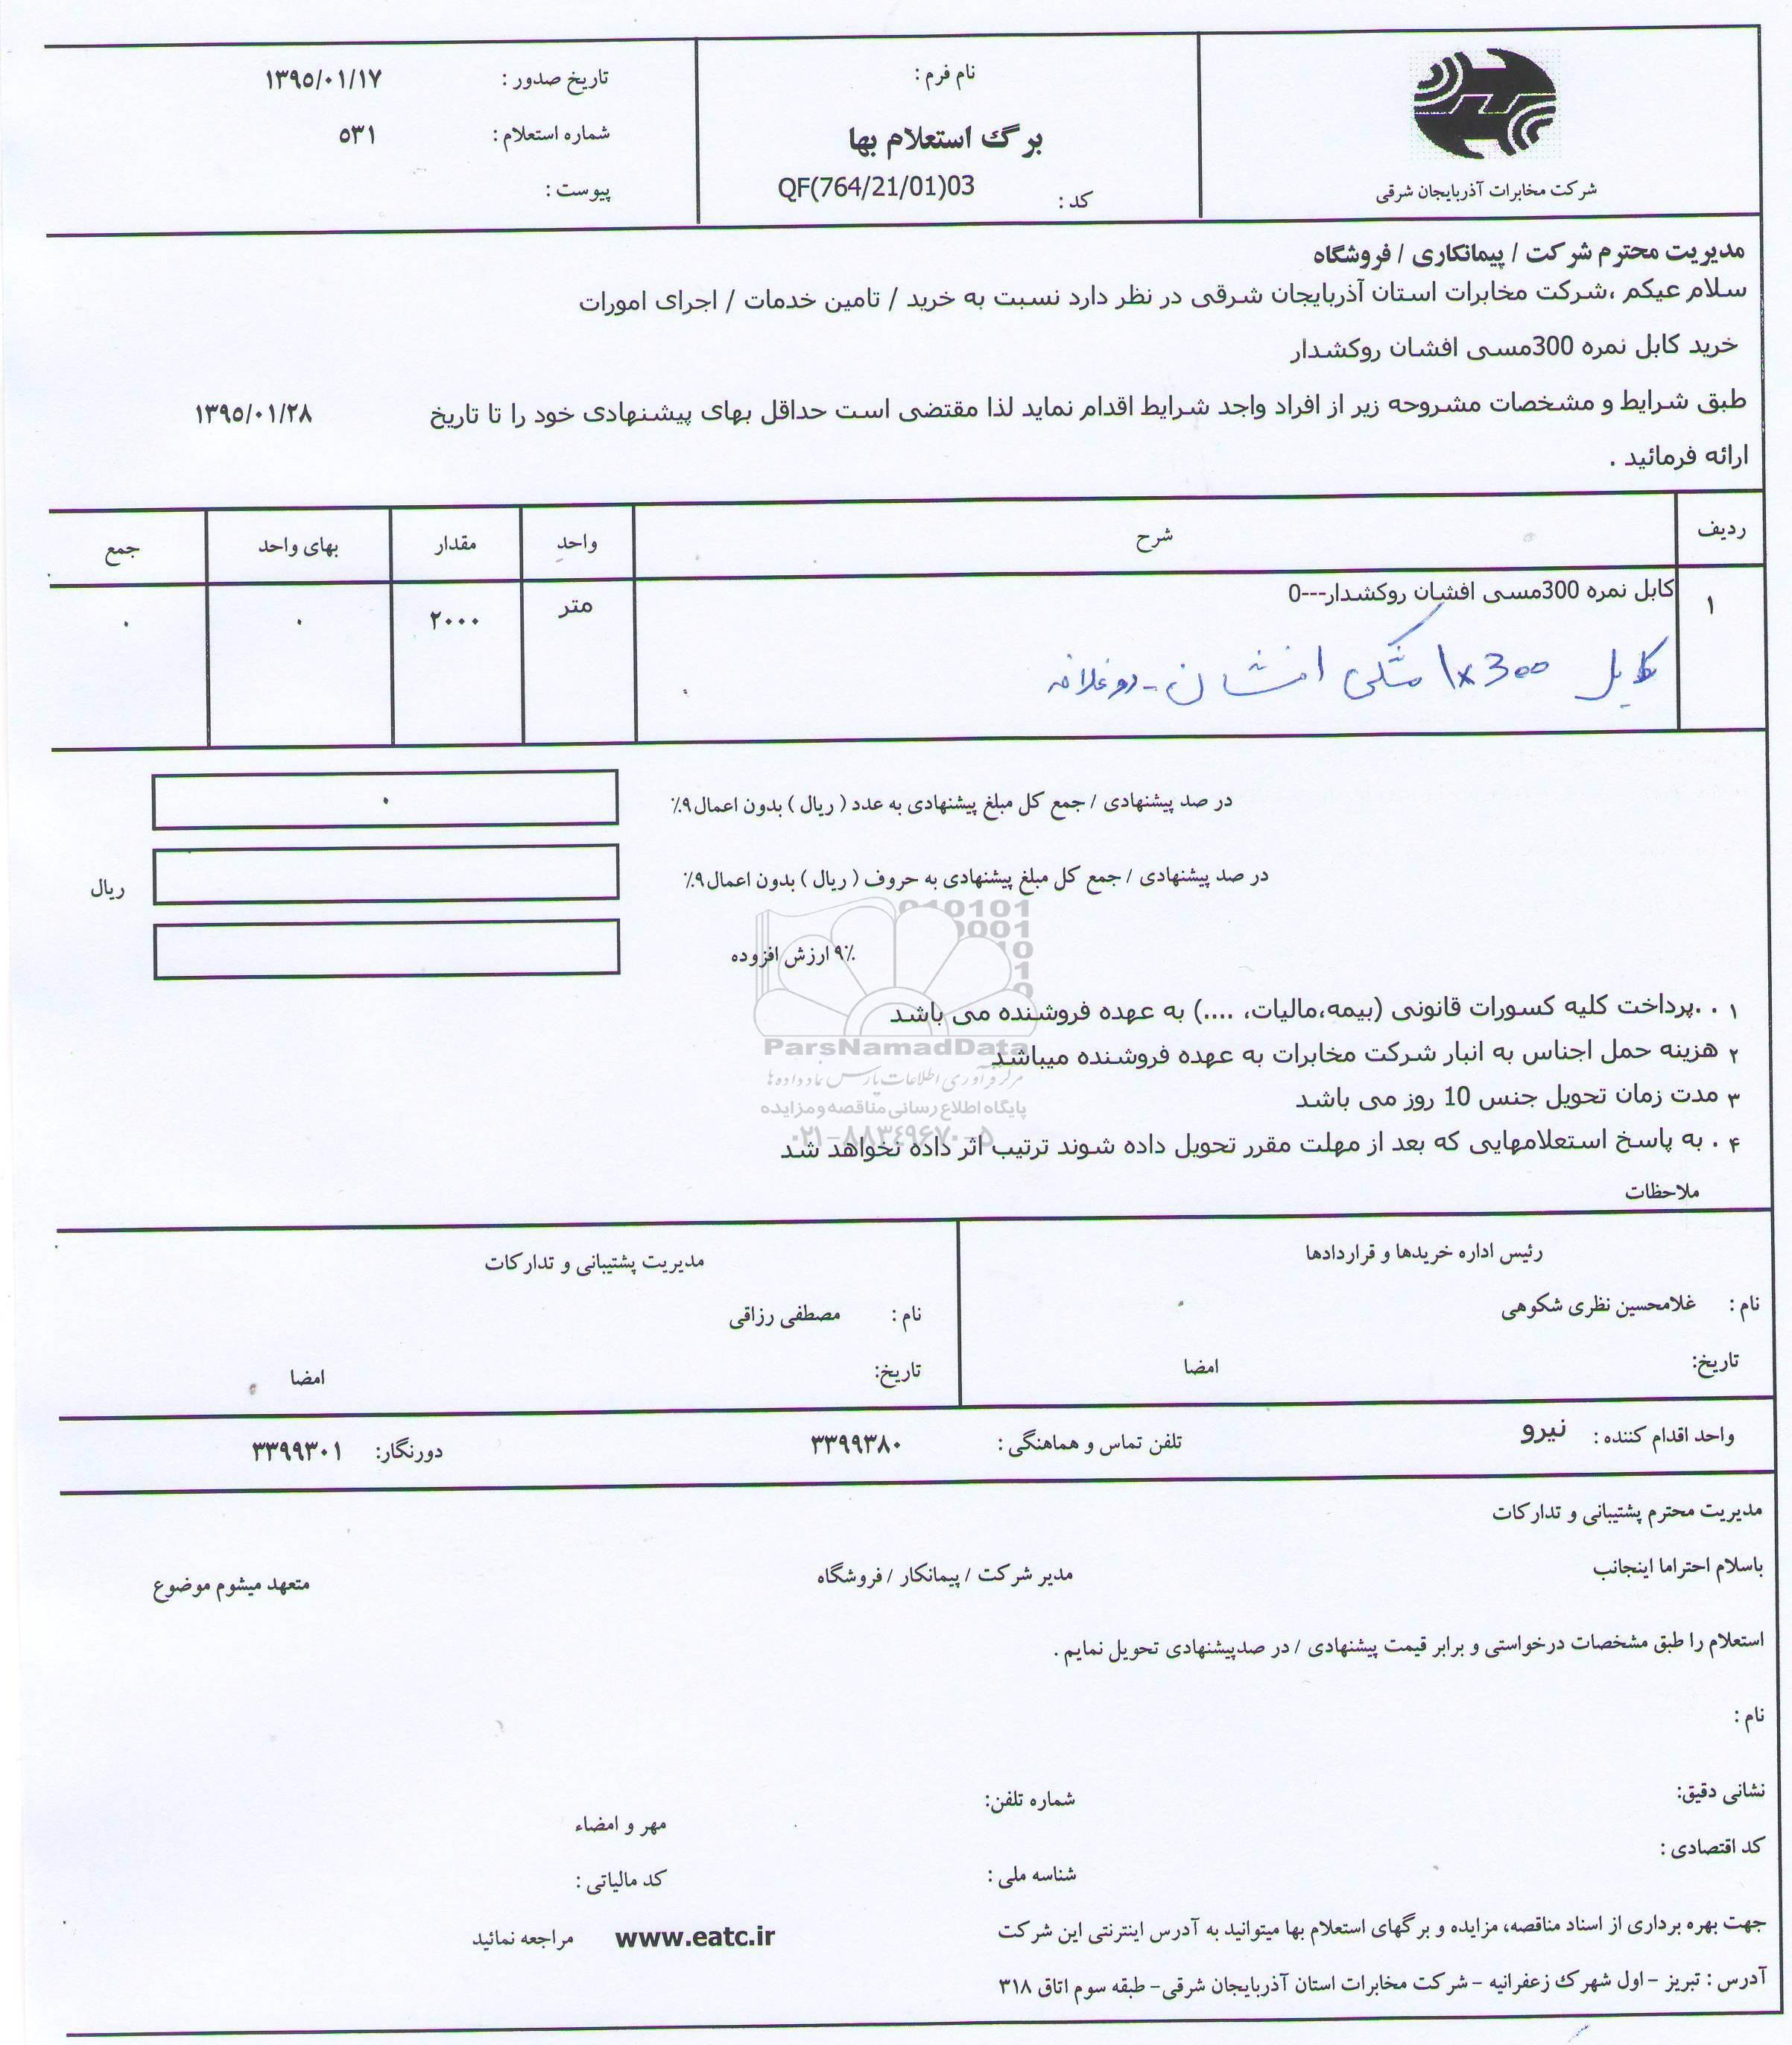 شرکت مخابرات آذربایجان شرقی
نام فرم :
برگ استعلام بها
کد : QF(764/21/01)03
تاریخ صدور : ۱۳۹۵/۰۱/۱۷
شماره استعلام : ۵۳۱
پیوست :
مدیریت محترم شرکت / پیمانکاری / فروشگاه
سلام عیکم ،شرکت مخابرات استان آذربایجان شرقی در نظر دارد نسبت به خرید / تامین خدمات / اجرای امورات
خرید کابل نمره 300مسی افشان روکشدار
طبق شرایط و مشخصات مشروحه زیر از افراد واجد شرایط اقدام نماید لذا مقتضی است حداقل بهای پیشنهادی خود را تا تاریخ ۱۳۹۵/۰۱/۲۸
ارائه فرمائید .
ردیف شرح واحد مقدار بهای واحد جمع
۱ کابل نمره 300مسی افشان روکشدار---0 متر ۲۰۰۰ ۰ ۰
کابل 1x300 مشکی افشان - دو غلافه
در صد پیشنهادی / جمع کل مبلغ پیشنهادی به عدد ( ریال ) بدون اعمال ۹٪ ۰
در صد پیشنهادی / جمع کل مبلغ پیشنهادی به حروف ( ریال ) بدون اعمال ۹٪ ریال
۹٪ ارزش افزوده
۱ . .پرداخت کلیه کسورات قانونی (بیمه،مالیات، ....) به عهده فروشنده می باشد
۲ هزینه حمل اجناس به انبار شرکت مخابرات به عهده فروشنده میباشد
۳ مدت زمان تحویل جنس 10 روز می باشد
۴ . به پاسخ استعلامهایی که بعد از مهلت مقرر تحویل داده شوند ترتیب اثر داده نخواهد شد
ملاحظات
ParsNamadData
مرکز فرآوری اطلاعات پارس نماد داده ها
پایگاه اطلاع رسانی مناقصه و مزایده
۰۲۱-۸۸۳۴۹۶۷۰-۵
رئیس اداره خریدها و قراردادها
نام : غلامحسین نظری شکوهی
تاریخ: امضا
مدیریت پشتیبانی و تدارکات
نام : مصطفی رزاقی
تاریخ: امضا
واحد اقدام کننده : نیرو تلفن تماس و هماهنگی : ۳۳۹۹۳۸۰ دورنگار: ۳۳۹۹۳۰۱
مدیریت محترم پشتیبانی و تدارکات
باسلام احتراما اینجانب مدیر شرکت / پیمانکار / فروشگاه متعهد میشوم موضوع
استعلام را طبق مشخصات درخواستی و برابر قیمت پیشنهادی / در صدپیشنهادی تحویل نمایم .
نام :
نشانی دقیق: شماره تلفن: مهر و امضاء
کد اقتصادی : شناسه ملی : کد مالیاتی :
جهت بهره برداری از اسناد مناقصه، مزایده و برگهای استعلام بها میتوانید به آدرس اینترنتی این شرکت www.eatc.ir مراجعه نمائید
آدرس : تبریز - اول شهرک زعفرانیه - شرکت مخابرات استان آذربایجان شرقی- طبقه سوم اتاق ۳۱۸